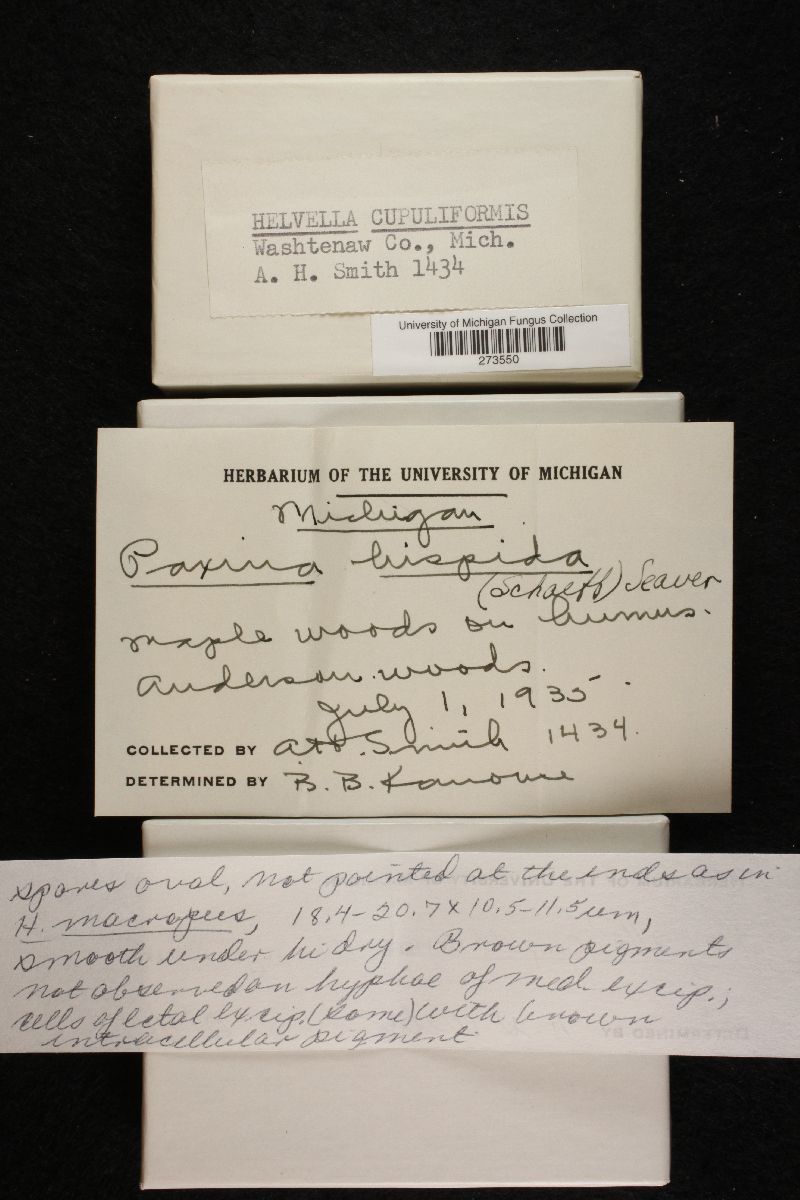 HELVELLA CUPULIFORMIS
Washtenaw Co., Mich.
A. H. Smith 1434
University of Michigan Fungus Collection
273550
HERBARIUM OF THE UNIVERSITY OF MICHIGAN
Michigan
Paxina hispida
(Schaeff) Seaver
maple woods on humus.
Anderson woods.
July 1, 1935.
COLLECTED BY AHS. Smith 1434.
DETERMINED BY B. B. Kanouse
spores oval, not pointed at the ends as in
H. macropus, 18.4-20.7 x 10.5-11.5 um,
smooth under hi dry. Brown pigments
not observed on hyphae of med excip.;
cells of ectal excip. (some) with brown
intracellular pigment